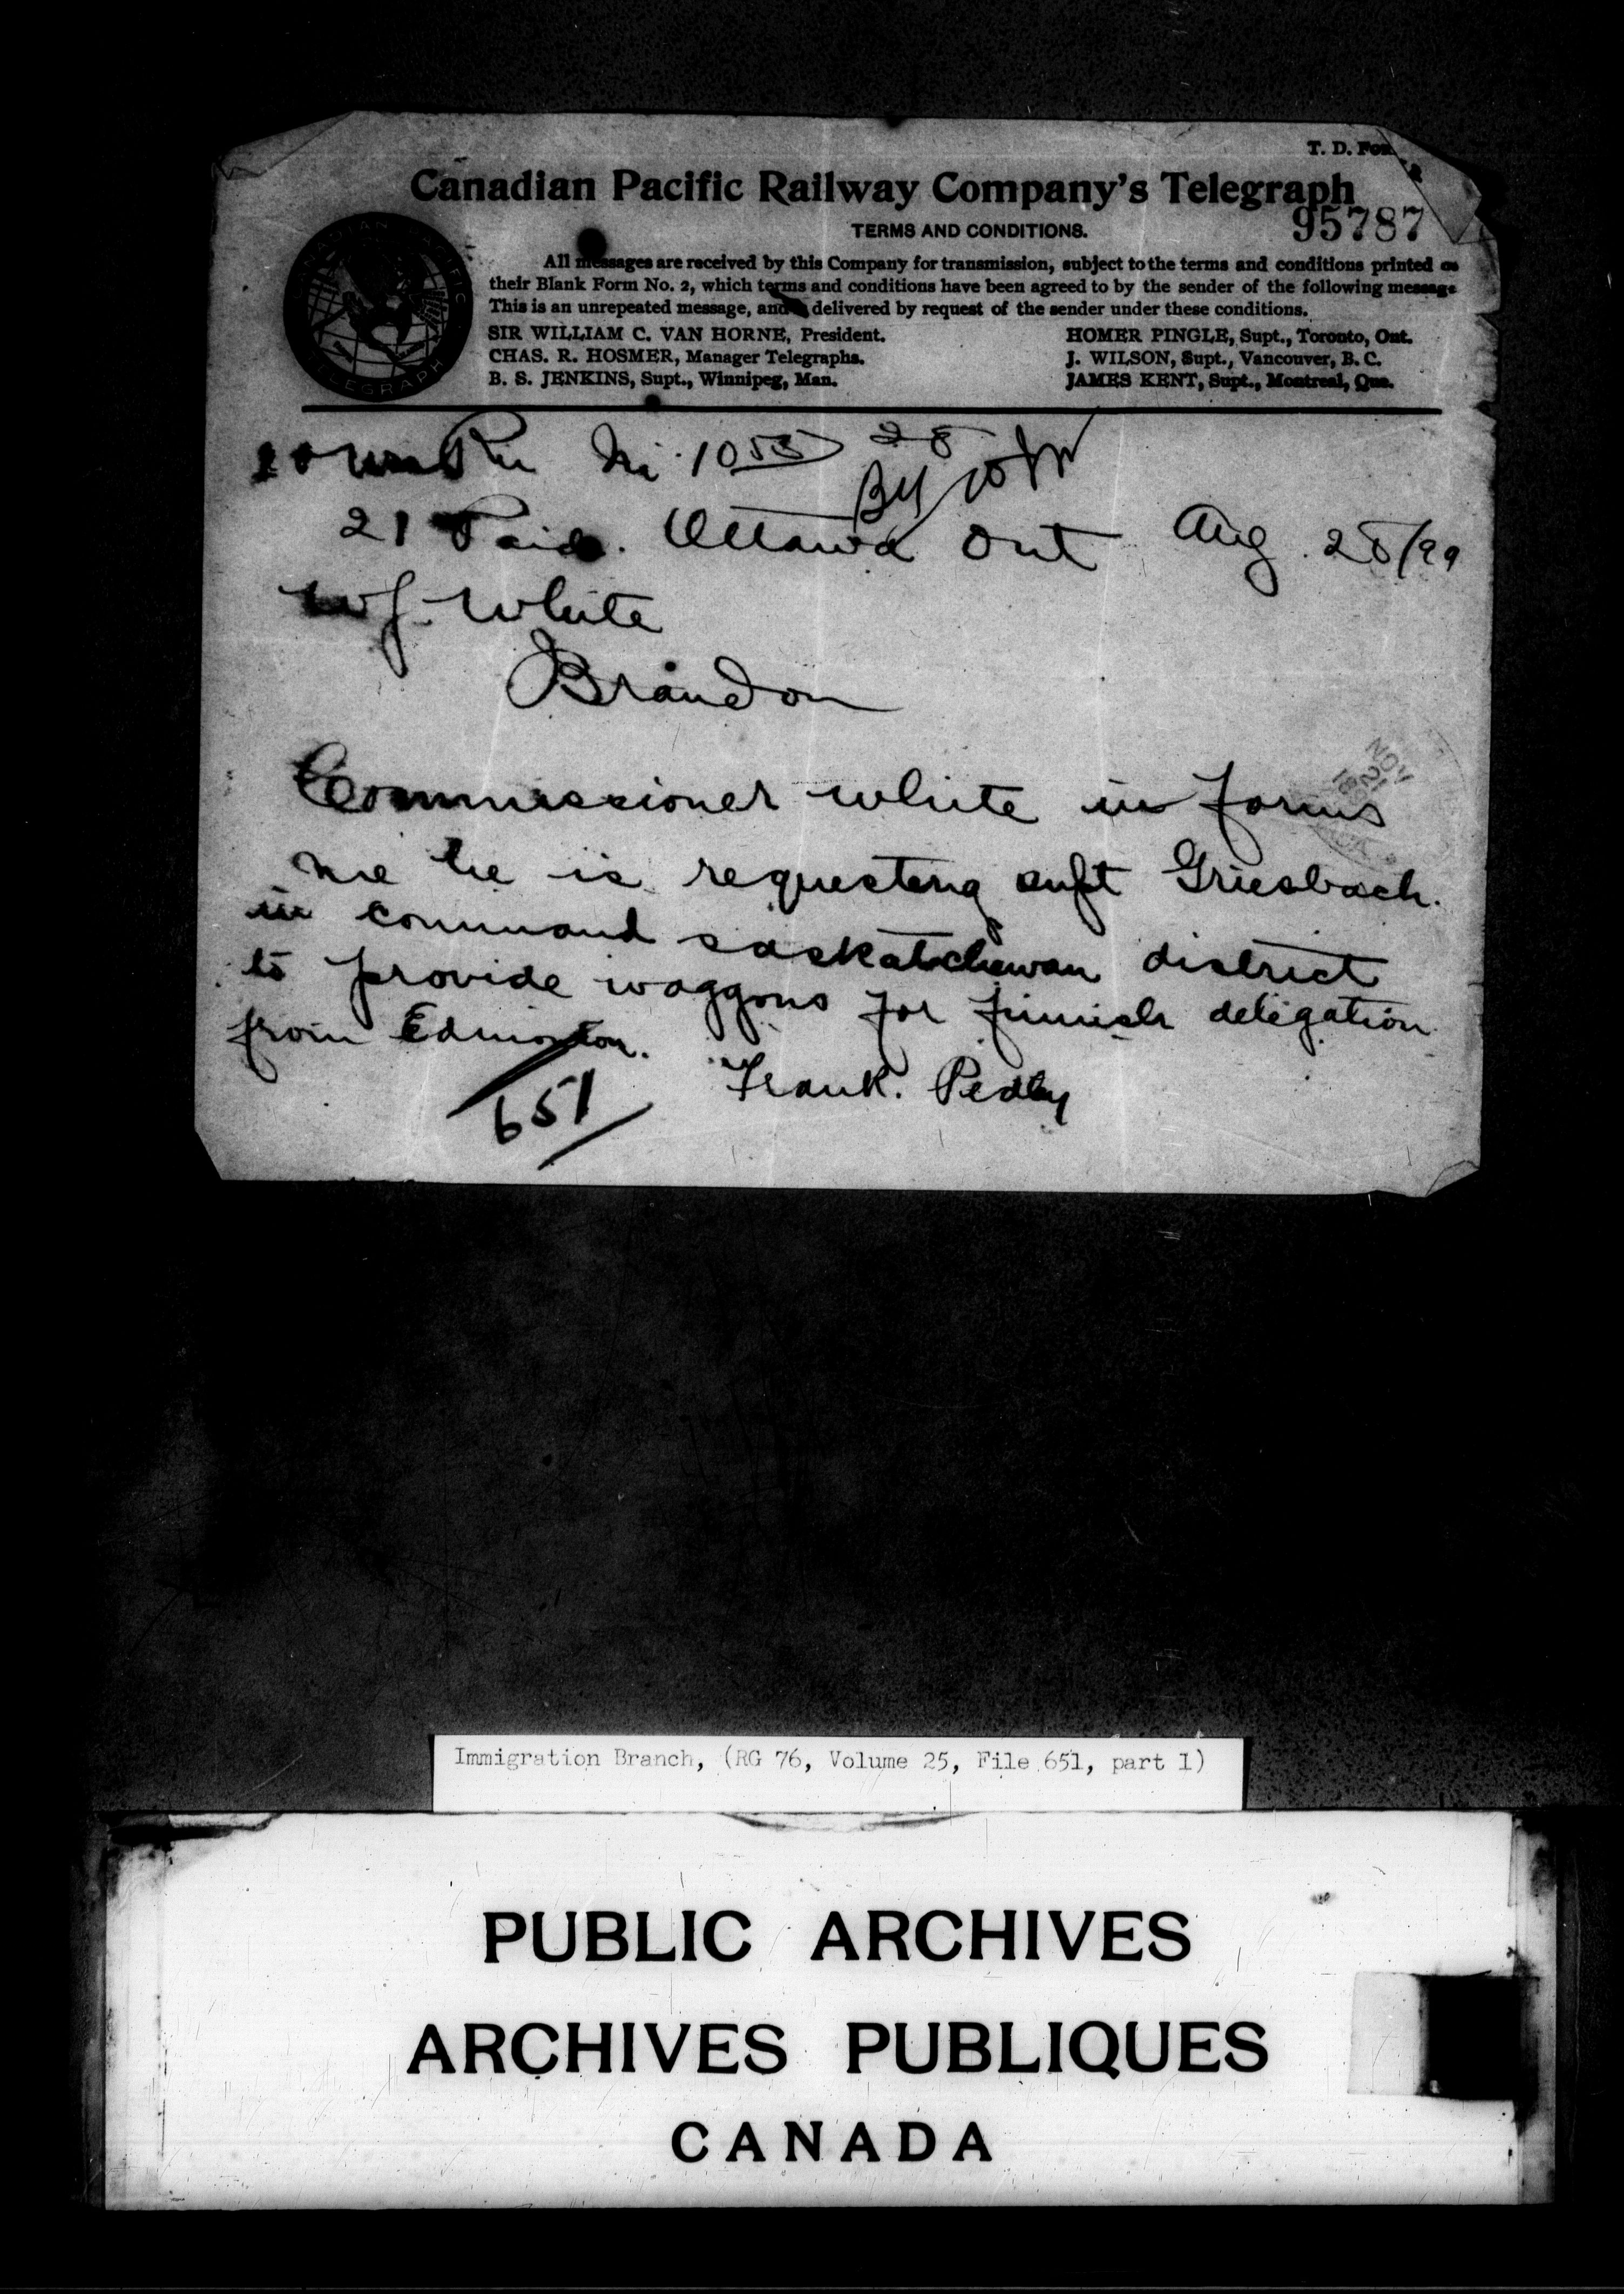 T. D. Fo
Canadian Pacific Railway Company's Telegraph
95787
TERMS AND CONDITIONS.
All messages are received by this Company for transmission, subject to the terms and conditions printed on
their Blank Form No. 2, which terms and conditions have been agreed to by the sender of the following message
This is an unrepeated message, and delivered by request of the sender under these conditions.
SIR WILLIAM C. VAN HORNE, President.
CHAS. R. HOSMER, Manager Telegraphs.
B. S. JENKINS, Supt., Winnipeg, Man.
HOMER PINGLE, Supt., Toronto, Ont.
J. WILSON, Supt., Vancouver, B. C.
JAMES KENT, Supt., Montreal, Que.
CANADIAN PACIFIC
TELEGRAPH
1053 28
21 Paid. Ottawa Ont Aug. 28/99
W J. White
Brandon
NOV
21
Commissioner white in forms
me he is requesting supt Griesbach.
in command saskatchewan district
to provide waggons for finnish deligation
from Edmonton.
Frank. Pedley
651
Immigration Branch, (RG 76, Volume 25, File 651, part 1)
PUBLIC ARCHIVES
ARCHIVES PUBLIQUES
CANADA